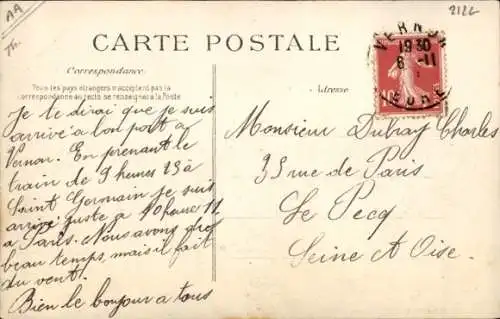 AA
Th.
2122
CARTE POSTALE
Correspondance
Tous les pays étrangers n'acceptent pas la
correspondance au recto se renseigner à la Poste
Adresse
VERNON
19 30
6 -11
EURE
10
Je te dirai que je suis
arrivé a bon port à
Vernon. En prenant le
train de 9 heures 23 à
Saint Germain je suis
arrivé juste a 10 heure 11
a Paris. Nous avons
beau temps, mais il fait
du vent.
Bien le bonjour a tous
Monsieur Dubray Charles
35 rue de Paris
Le Pecq
Seine et Oise.